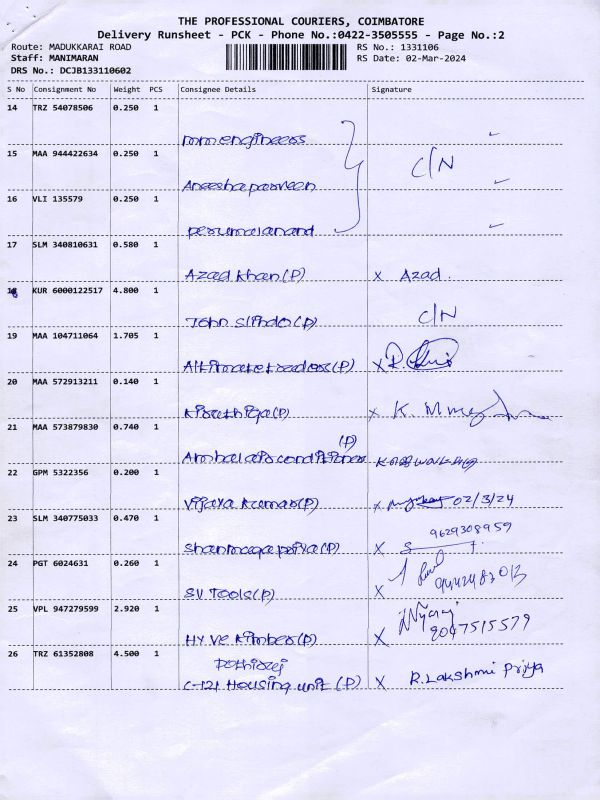 THE PROFESSIONAL COURIERS, COIMBATORE
Delivery Runsheet - PCK - Phone No.:0422-3505555 - Page No.:2
Route: MADUKKARAI ROAD RS No.: 1331106
Staff: MANIMARAN RS Date: 02-Mar-2024
DRS No.: DCJB133110602
S No Consignment No Weight PCS Consignee Details Signature
14 TRZ 54078506 0.250 1
mmengineers
15 MAA 944422634 0.250 1
C/N
Aneesha parveen
16 VLI 135579 0.250 1
perumalanand
17 SLM 340810631 0.580 1
Azad khan (P) x Azad.
18 KUR 6000122517 4.800 1
John Slindo (P) C/N
19 MAA 104711064 1.705 1
Altimate traders (P) x R.
20 MAA 572913211 0.140 1
Kiruthiga (P) x K.
21 MAA 573879830 0.740 1
(P)
Ambal airconditioner
22 GPM 5322356 0.200 1
Vijaya kumar (P) x 02/3/24
23 SLM 340775033 0.470 1
9629308959
Shanmuga priya (P) x S
24 PGT 6024631 0.260 1
SV Tools (P) x
25 VPL 947279599 2.920 1
8047515579
HY Ve Kimber (P) x
26 TRZ 61352808 4.500 1
Pothiraj
C-121 Housing unit (P) x R.Lakshmi Priya